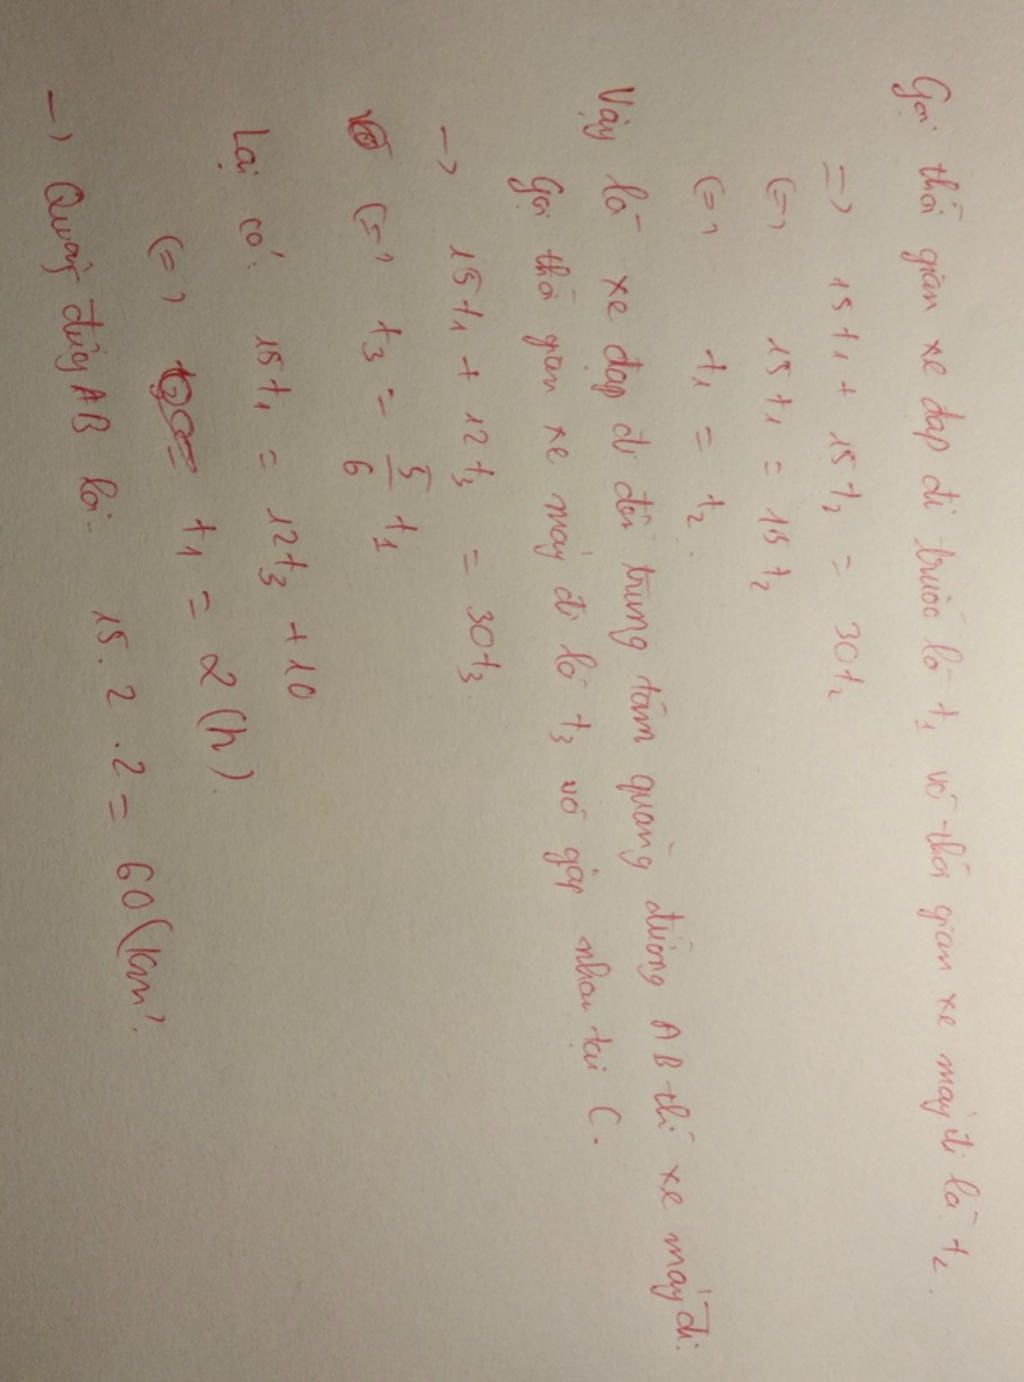 Gọi thời gian xe đạp đi trước là t₁ và thời gian xe máy đi là t₂.
=> 15t₁ + 15t₂ = 30t₂
<=> 15t₁ = 15t₂
<=> t₁ = t₂.
Vậy là xe đạp đi đến trung tâm quãng đường AB thì xe máy đi.
Gọi thời gian xe máy đi là t₃ và gặp nhau tại C.
-> 15t₁ + 12t₃ = 30t₃.
<=> t₃ = 5/6 t₁
Lại có: 15t₁ = 12t₃ + 10
<=> t₁ = 2 (h).
-> Quãng đường AB là: 15 . 2 . 2 = 60 (km).